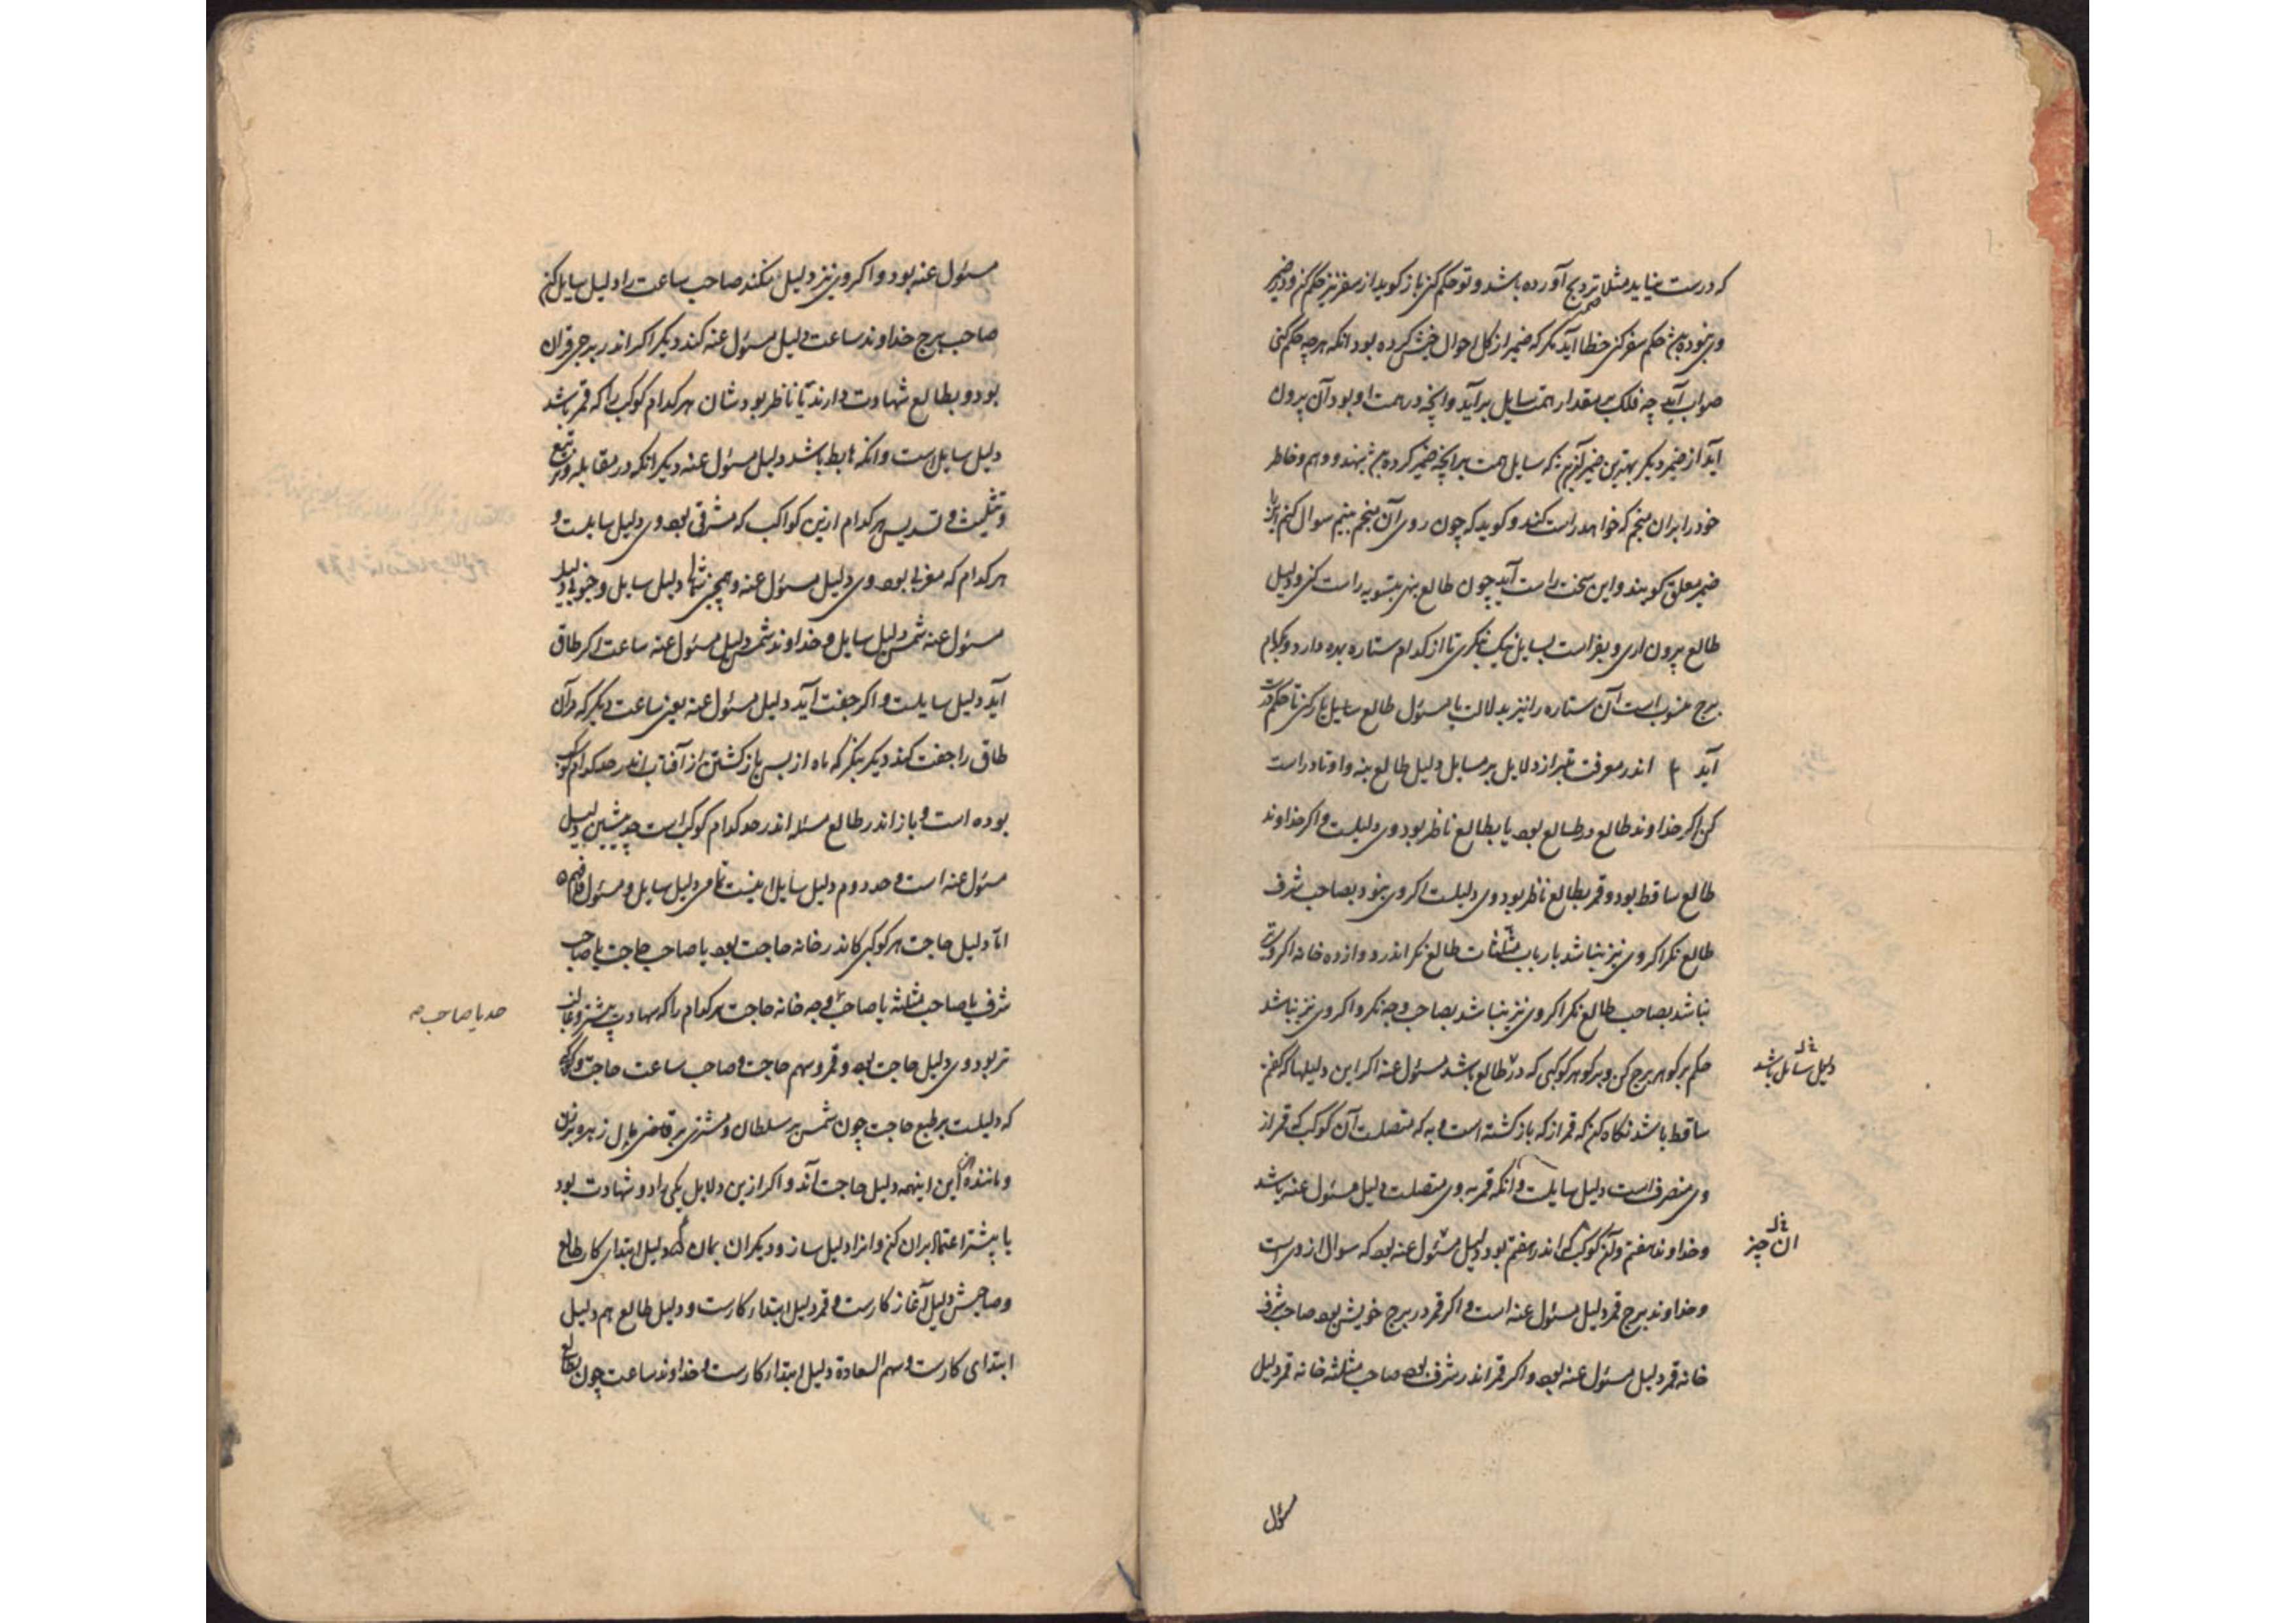 که درست نیاید مثلا ترویج آورده باشد و تو حکم کنی باز گوید از سفر نیز حکم کن و در ضمیر
وی نبوده باشد حکم سفر کنی خطا آید مگر که ضمیر از کل احوال خویش کرده بود انکه هرچه حکم کنی
صواب آید چه فلک بر مقدار همت سایل برآید وانچه در همت او بود آن برون
آید از ضمیر دیگر بهترین ضمیر که سایل همت بر انچه ضمیر کرده بنهند و وهم و خاطر
خود را بران منجم که خواهد راست کند و گوید که چون روی آن منجم بینم سوال کنم
ضمیر معلق گویند و این سخت راست آید چون طالع بنهی بتسویه راست کنی و دلیل
طالع برون اری و بفراست بسایل نیک بنگری تا از کدام ستاره بهره دارد و بکدام
برج منسوب است آن ستاره را نیز بدلالت با مسئول طالع سایل یار کنی تا حکم راست
آید ۴ اندر معرفت خبر از دلایل بر مسایل دلیل طالع بنه و اوتاد راست
کن اگر خداوند طالع در طالع بود یا بطالع ناظر بود وی دلیلست و اگر خداوند
طالع ساقط بود و قمر بطالع ناظر بود وی دلیلست اگر وی نبود بصاحب شرف
طالع نگر اگر وی نیز نباشد بارباب مثلثات طالع نگر اندر دوازده خانه اگر وی
نباشد بصاحب طالع نگر اگر وی نیز نباشد بصاحب وجه نگر و اگر وی نیز نباشد
حکم بر گوهر برج کن و بر گوهر کوکبی که در طالع باشد مسئول عنه اگر این دلیلها که گفتم
دلیل سائل باشد
ساقط باشد نگاه کن که قمر از که بازگشته است و به که متصلست آن کوکب که قمر از
وی منصرف است دلیل سایلست و انکه قمر به وی متصلست دلیل مسئول عنه باشد
و خداوند هفتم و آن کوکب که اندر هفتم بود دلیل مسئول عنه بود که سوال از وی است
ان چیز
و خداوند برج قمر دلیل مسئول عنه است و اگر قمر در برج خویش بود صاحب شرف
خانه قمر دلیل مسئول عنه بود و اگر قمر اندر شرف بود صاحب مثلثه خانه قمر دلیل
مسئول
مسئول عنه بود و اگر وی نیز دلیل نکند صاحب ساعت را دلیل سایل کن
صاحب برج خداوند ساعت دلیل مسئول عنه کند دیگر اگر اندر برجی قران
بود و بطالع شهادت دارند یا ناظر بودشان هر کدام کوکب را که قمر باشد
دلیل سایل است و انکه هابط باشد دلیل مسئول عنه دیگر انکه در مقابله و تربیع
و تثلیث و تسدیس هر کدام ازین کواکب که مشرقی بود وی دلیل سایلست و
هر کدام که مغربی بود وی دلیل مسئول عنه و همچنین شمالی دلیل سایل و جنوبی دلیل
مسئول عنه شمس دلیل سایل و خداوند شمس دلیل مسئول عنه ساعت اگر طاق
آید دلیل سایلست و اگر جفت آید دلیل مسئول عنه یعنی ساعت دیگر که در آن
طاق را جفت کند دیگر بنگر که ماه از پس بازگشتن از آفتاب اندر حد کدام کوکب
بوده است و باز اندر طالع مسئله اندر حد کدام کوکب است حد پیشین دلیل
مسئول عنه است و حد دوم دلیل سایل اینست تمامی دلیل سایل و مسئول
اما دلیل حاجت هر کوکبی کاندر خانه حاجت بود یا صاحب حاجت یا صاحب
شرف یا صاحب مثلثه یا صاحب وجه خانه حاجت هر کدام را که شهادت بیشتر و غالب
حد یا صاحب صح
تر بود وی دلیل حاجت بود و قمر و سهم حاجت و صاحب ساعت حاجت و کوکبی
که دلیلست بر طبع حاجت چون شمس بر سلطان و مشتری بر قاضی و مال زهره بر زنان
و مانند این اینهمه دلیل حاجت آند و اگر ازین دلایل یکی را دو شهادت بود
یا بیشتر اعتماد بران کن و انرا دلیل ساز و دیگران بمان دلیل ابتدای کار طالع
و صاحبش دلیل آغاز کارست و قمر دلیل ابتداء کارست و دلیل طالع هم دلیل
ابتدای کارست و سهم السعادة دلیل ابتداء کارست و خداوند ساعت چون بطالع